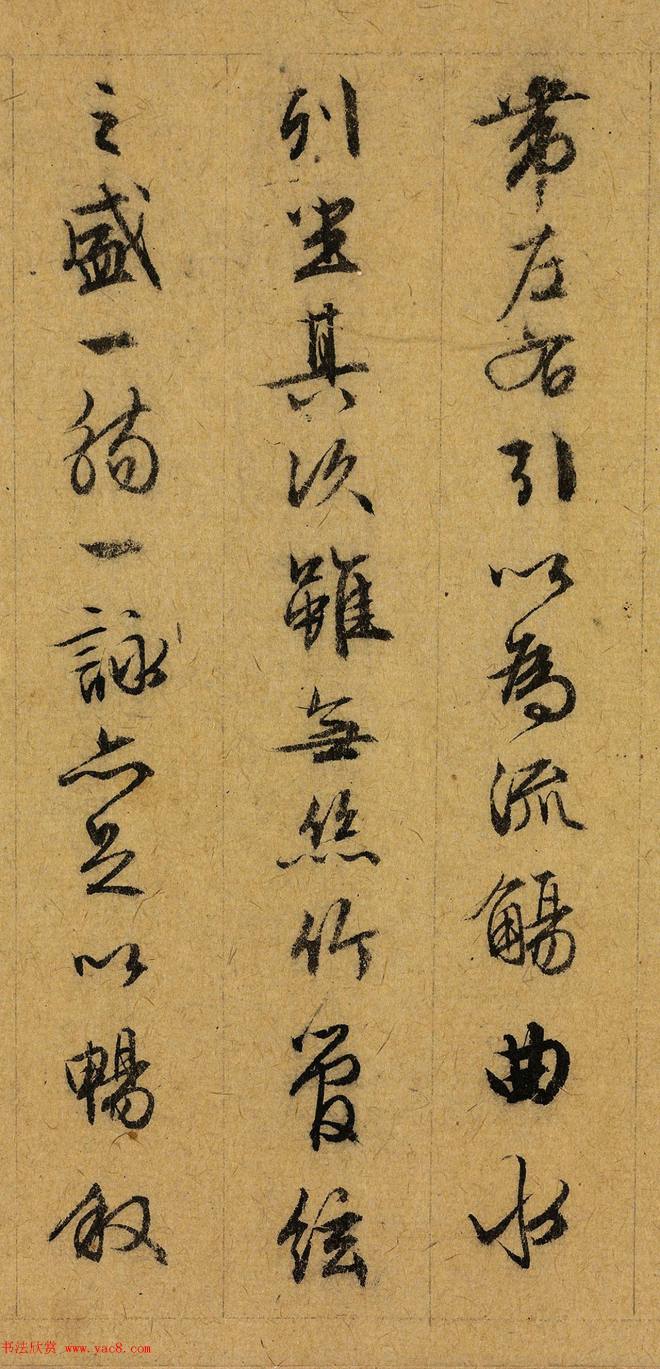 帶左右引以為流觴曲水
列坐其次雖無絲竹管絃
之盛一觴一詠亦足以暢敘
书法欣赏 www.yac8.com